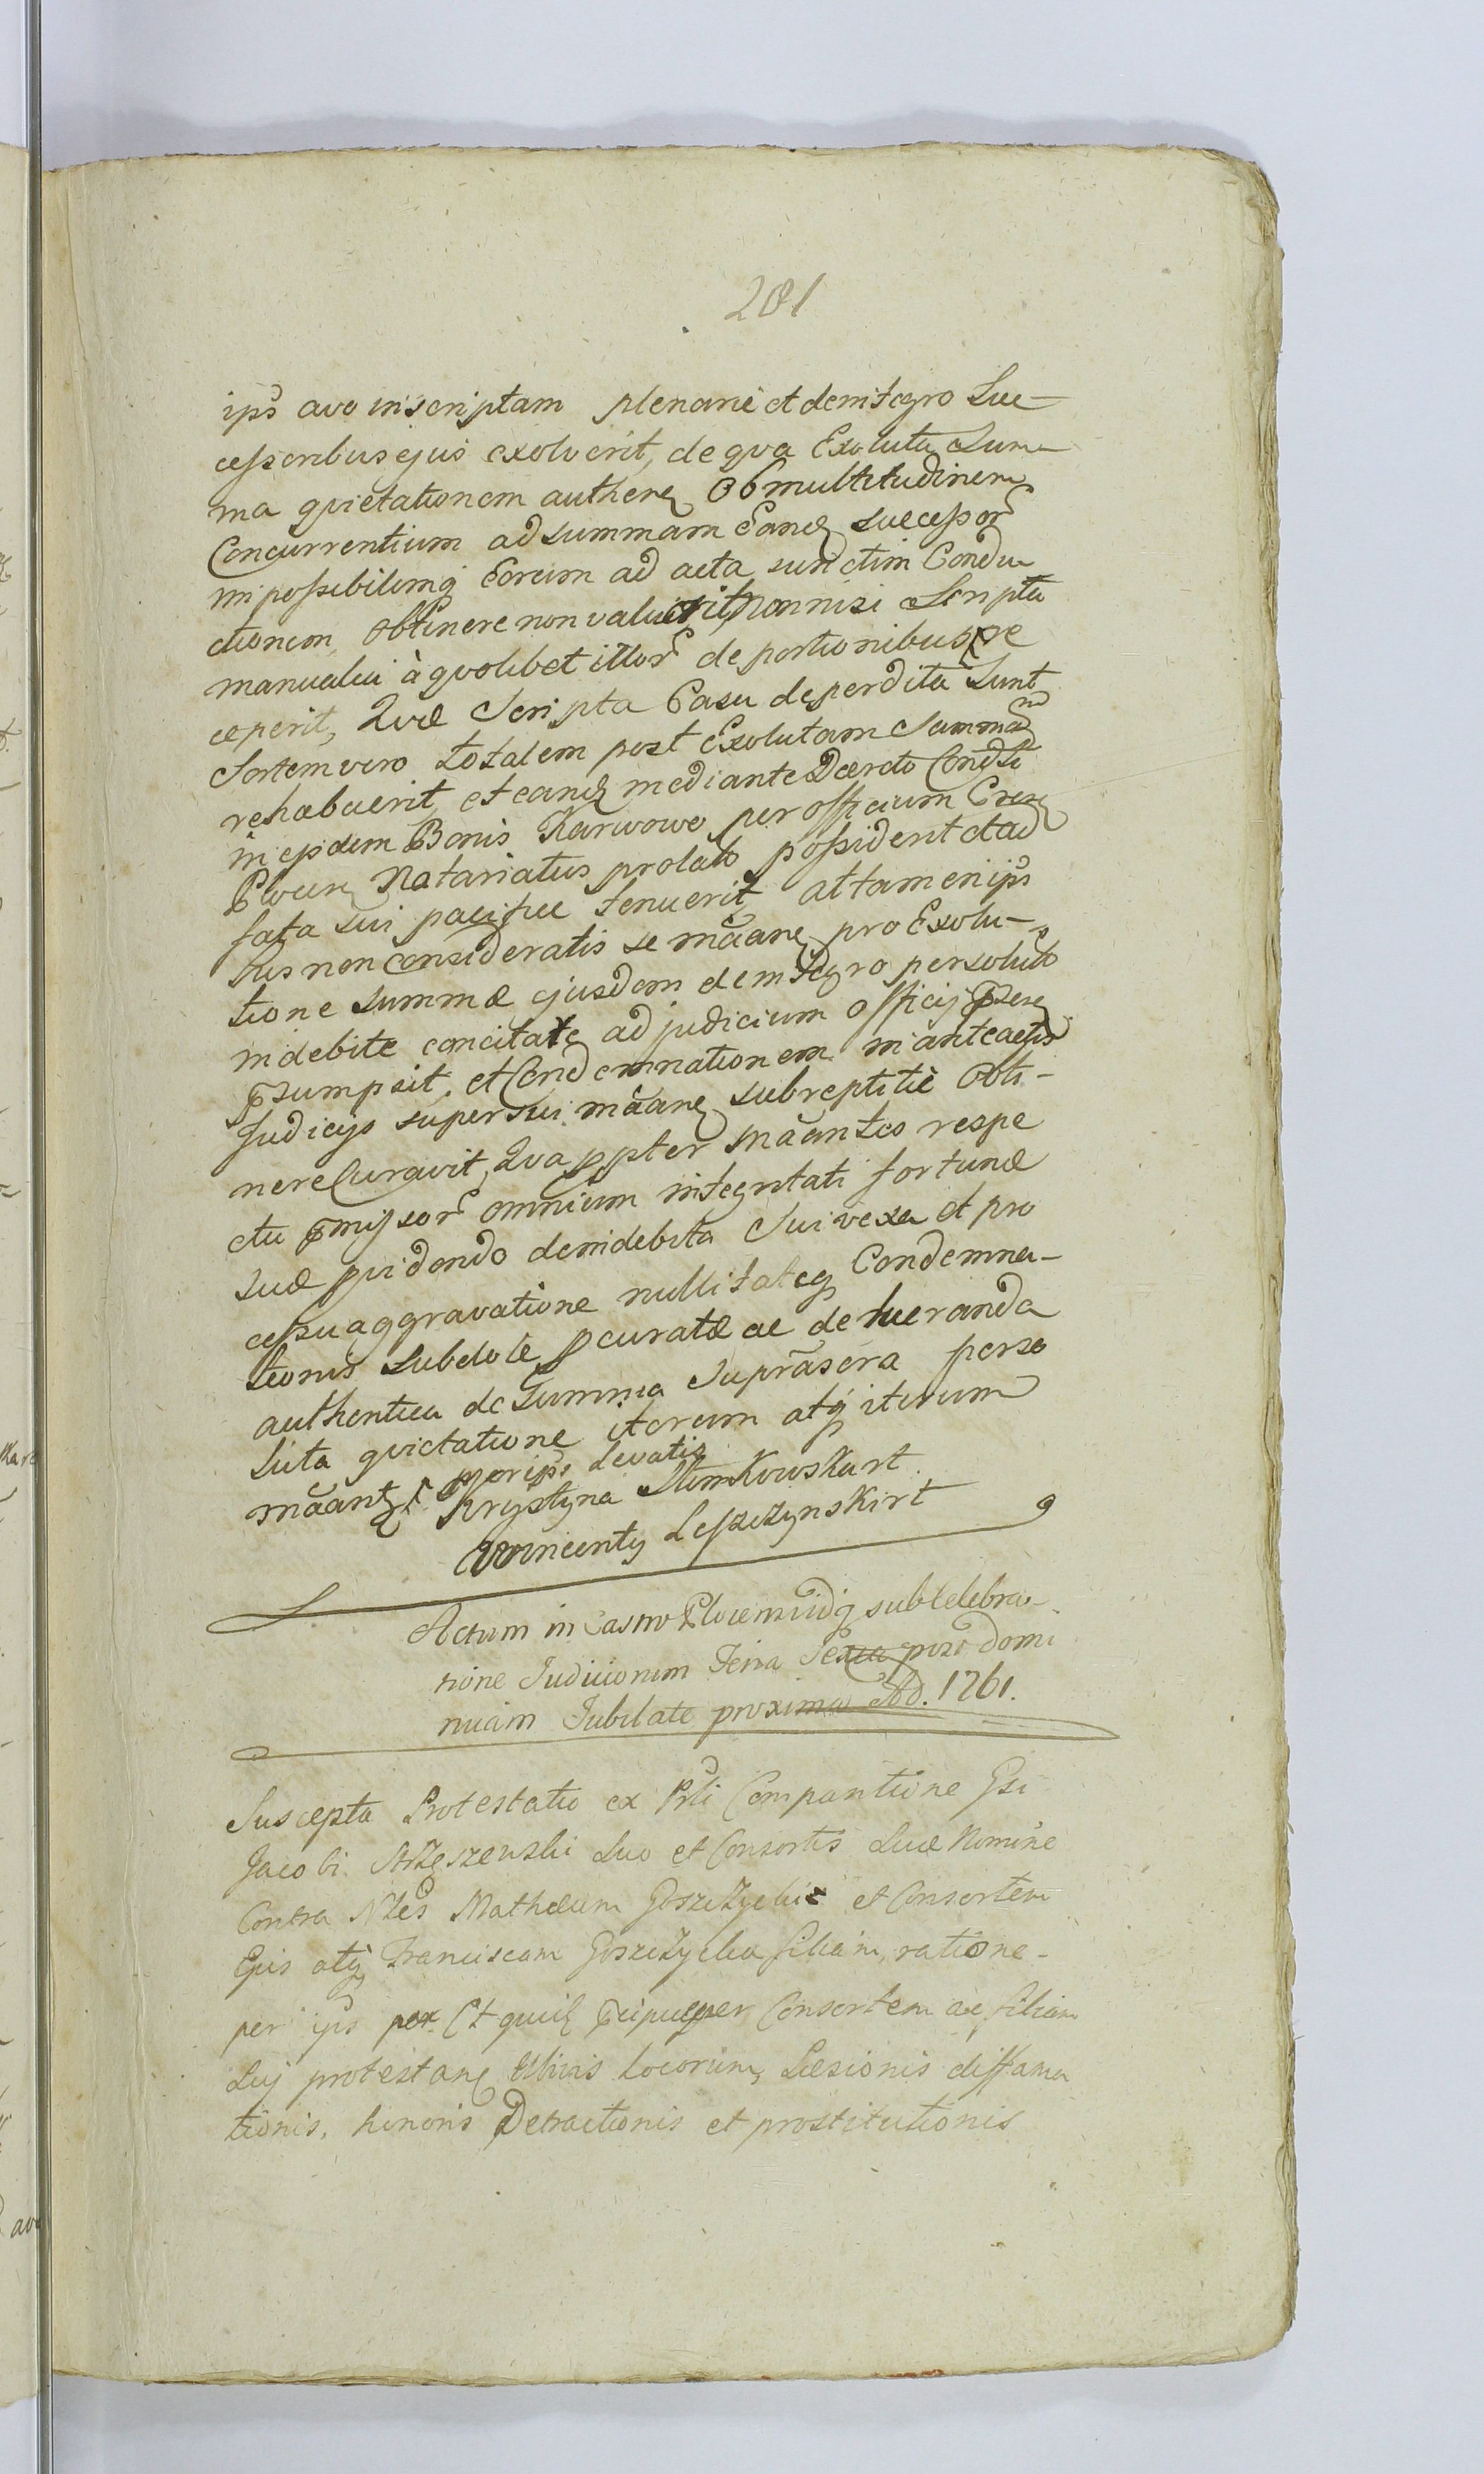 281
ips avo inscriptam plenarie et deintegro Suc-
cessoribus ejus exolverit, de qva Exoluta Sum-
ma qvietationem authenę Ob multitudinem
Concurrentium ad summam Eandę success or
impossibilemq Eorum ad acta sunctim Condu
ctionem, obtinere non valuerit, nonnisi Scripta
manualia à qvolibet illor de portionibus re
ceperit, Qvæ Scripta Casu deperdita Sunt
Sortem vero totalem post Exolutam Summam
rehabuerit, et eandę mediante Decreto Condti
in ejsdem Bonis Karwowo per officium Cręn
Plocen Notariatus prolato possident et ad
fata sui pacifice tenuerit, attamen ips
Jus non consideratis se mãane pro Exolu-
tione Summæ ejusdem deintegro persoluto
indebite concitate ad judicium officij
psumpsit. et Condemnationem in anteactis
Judicijs super sui mãanę subreptitiè Obti-
nere Curavit, Qvappter mãantes respe
ctu pmissor omnium integritati fortunæ
suæ pvidendo de indebita Sui vexa et pro
cessu aggravatione nullitateq Condemna-
tionis subdole pcuratæ ac de lueranda
authentica de Summa Suprãscra perso
luta qvietatione iterum atq iterum
mãantę. per ips levatis
Krystyna Slomkowska rt.
Wincenty Leszczynski rt
Actum in Castro Plocen Fidq sub Celebra-
tione Judiciorum Feria Sexta post domi
nicam Jubilate proxima Ad. 1761.
Suscepta Protestatio ex Prli Comparitione Gsi
Jacobi Strzeszewski Suo et Consortis Suæ Nomine
Contra Nles Mathæum Goszczycki et Consortem
Ejus atq Franciscam Goszczycka filiam, ratione-
per ips per Consortem ac filiam
Suj protestanę locorum, Læsionis diffama
tionis, honoris Detractionis et prostitutionis